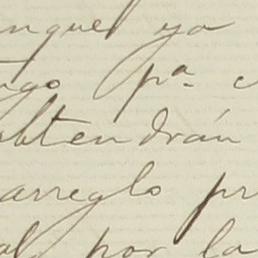 nque ya
ngo pa.
obtendrán
arreglo pr
por la